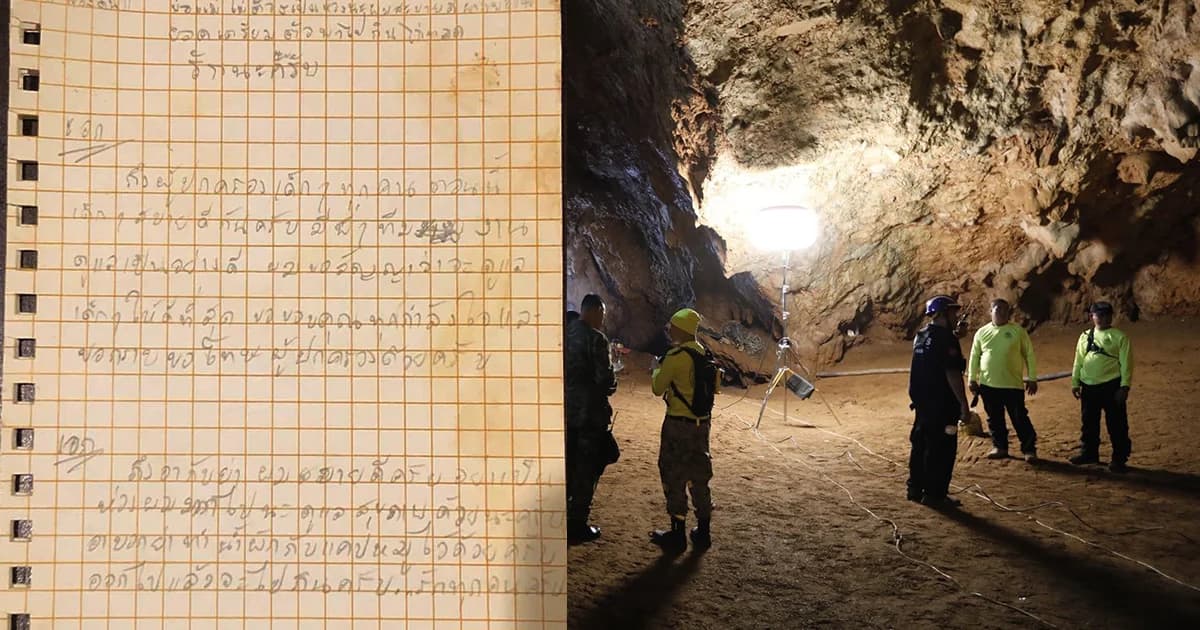 รักนะครับ
เอก
ถึงผู้ปกครองเด็กๆ ทุกคน ตอนนี้
เด็กๆ สบายดีกันครับ มีพี่ๆ ทีม งาน
ดูแลเป็นอย่างดี ผมขอสัญญาว่าจะดูแล
เด็กๆ ให้ดีที่สุด ขอขอบคุณทุกกำลังใจและ
ขอกราบขอโทษผู้ปกครองด้วยครับ
เอก
ถึงอากับย่า ผมสบายดีครับ อย่าเป็น
ห่วงผม ไปนะ ดูแลสุขภาพด้วยนะครับ
ย่าทำน้ำผักกับแคปหมูไว้ด้วยครับ
ออกไปแล้วจะไปกินครับ..รักทุกคนครับ